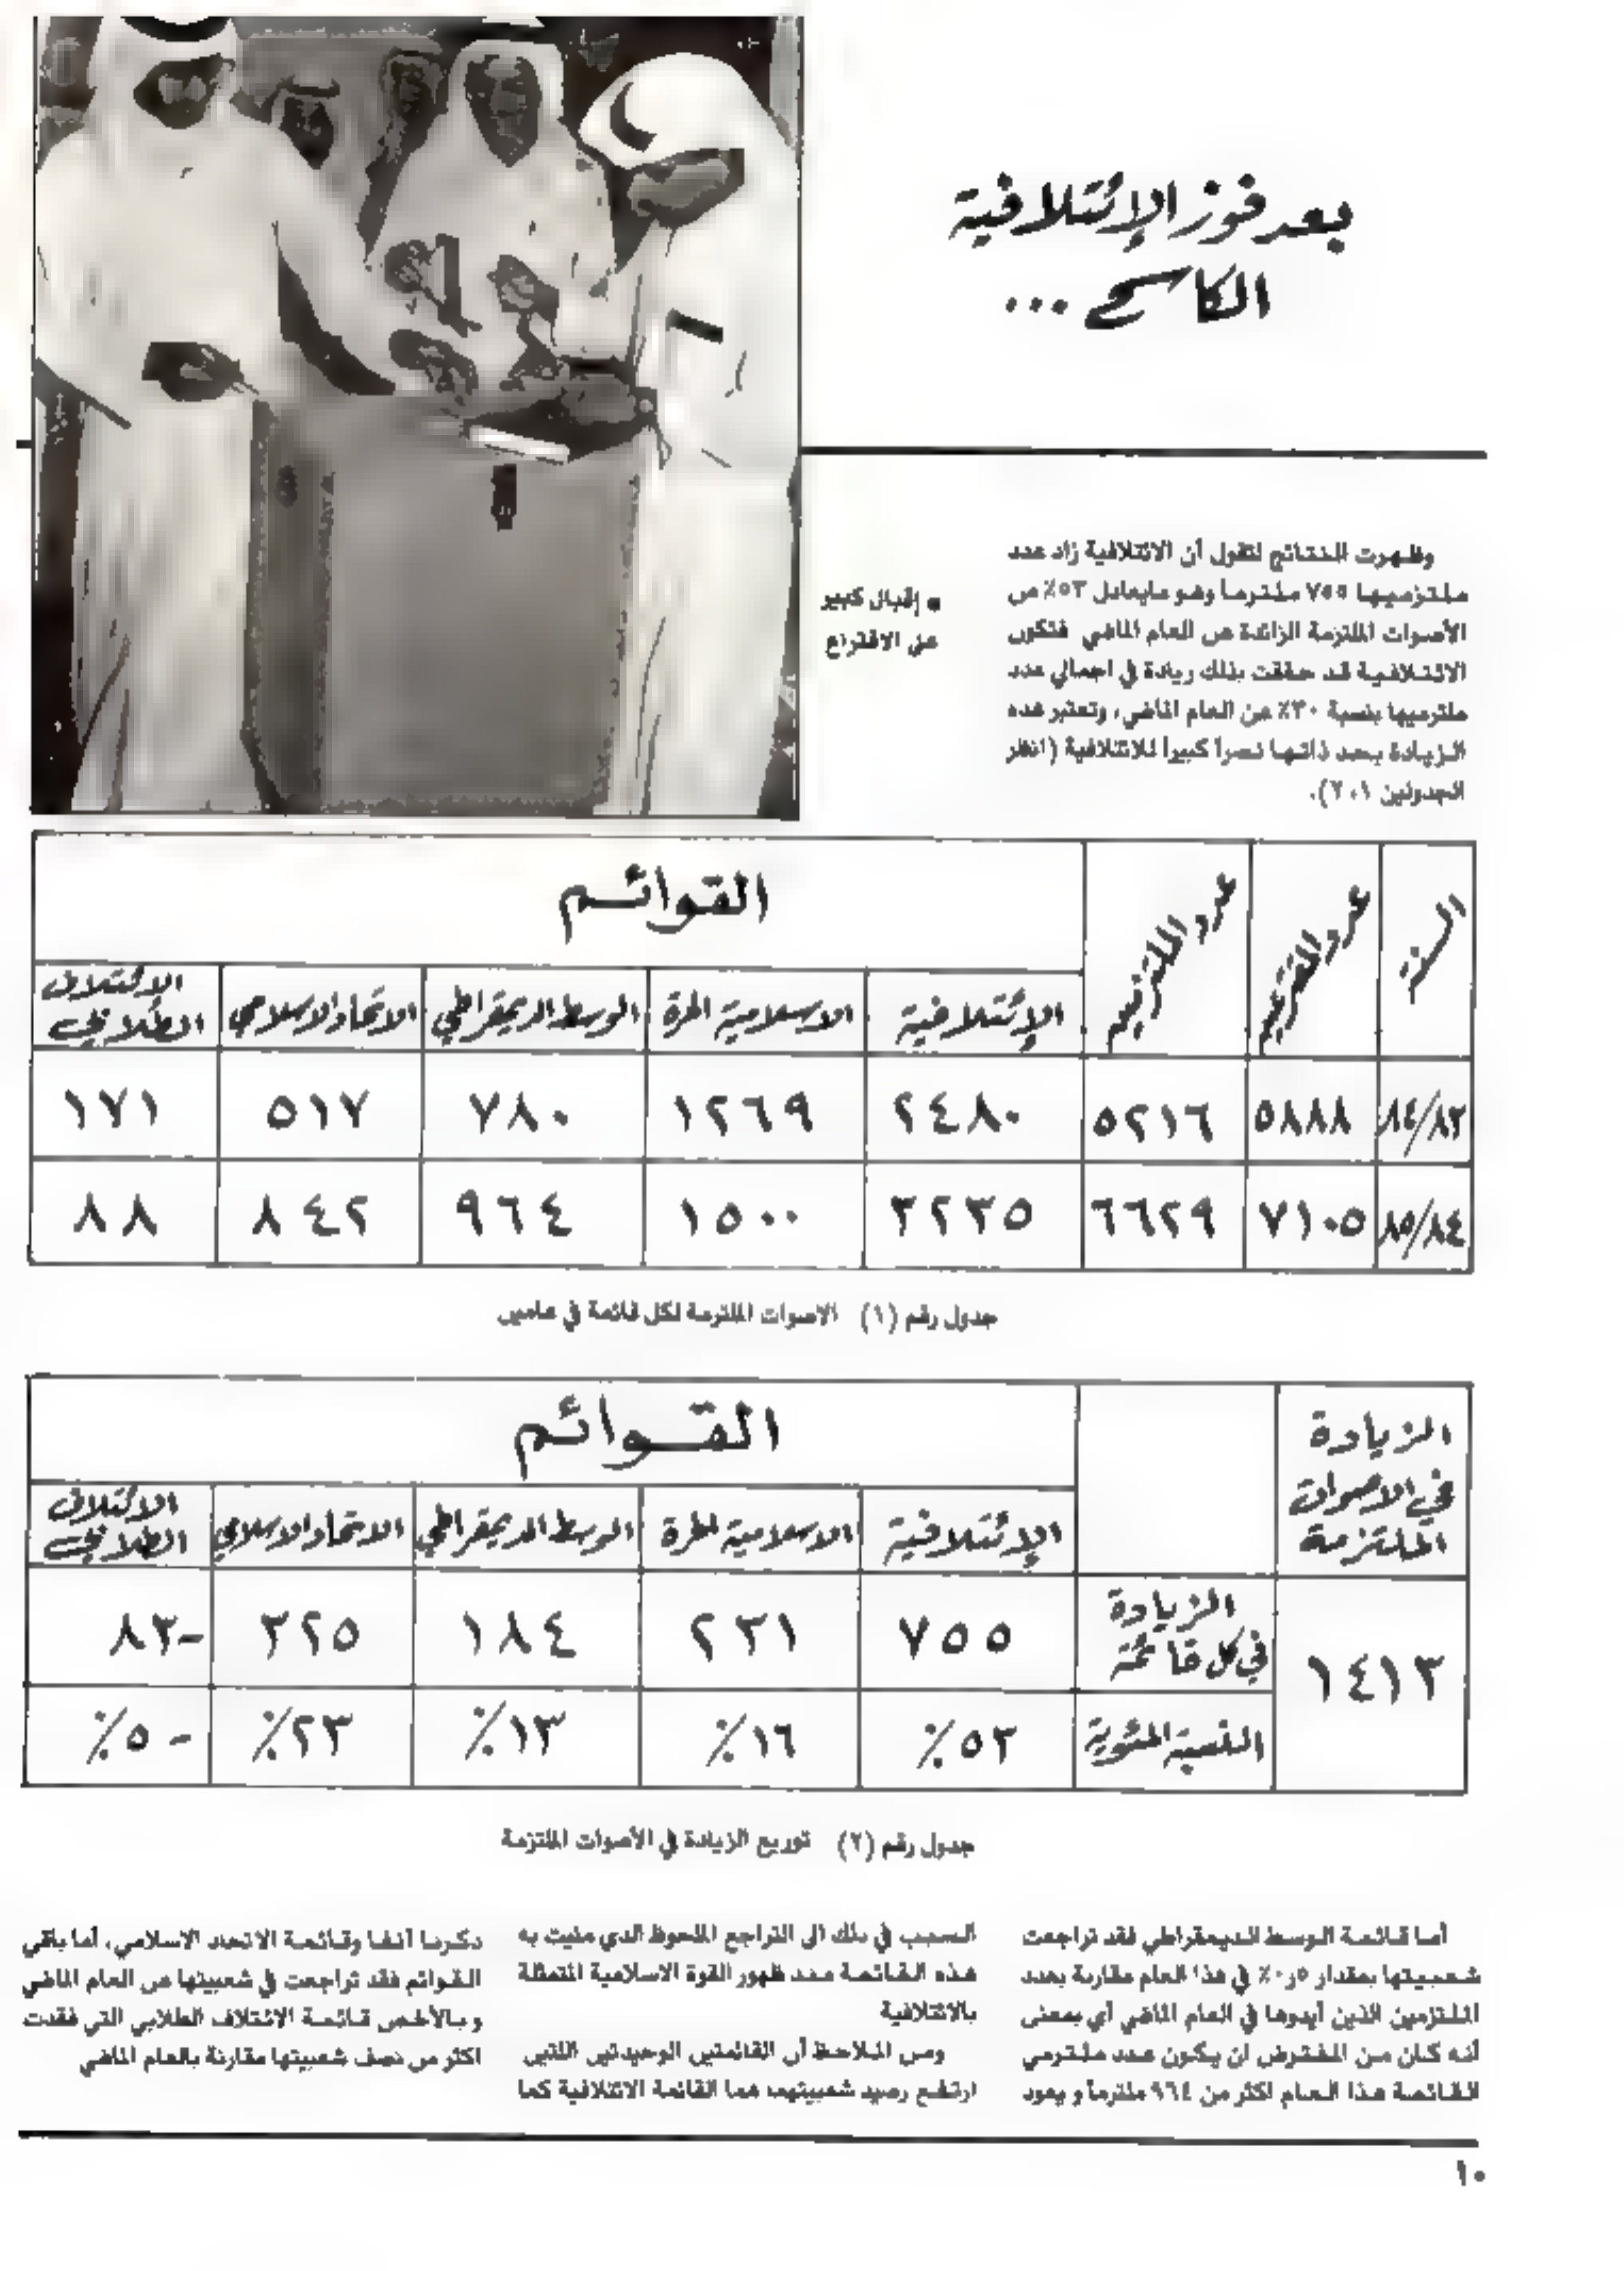 بعد فوز الإئتلافية
الكاسح ...
وظهرت النتائج لتقول أن الائتلافية زاد عدد
ملتزميها ٧٥٥ ملتزماً وهو مايعادل ٥٣٪ من
الأصوات الملتزمة الزائدة عن العام الماضي فتكون
الائتلافية قد حققت بذلك زيادة في اجمالي عدد
ملتزميها بنسبة ٣٠٪ عن العام الماضي، وتعتبر هذه
الزيادة بحد ذاتها نصراً كبيراً للائتلافية (انظر
الجدولين ٢،١).
• إقبال كبير
على الاقتراع
السنة عدد المقترعين عدد الملتزمين القوائم
الإئتلافية الاسلامية الحرة الوسط الديمقراطي الاتحاد الاسلامي الائتلاف
الطلابي
٨٤/٨٣ ٥٨٨٨ ٥٢١٦ ٢٤٨٠ ١٢٦٩ ٧٨٠ ٥١٧ ١٧١
٨٥/٨٤ ٧١٠٥ ٦٦٢٩ ٣٢٣٥ ١٥٠٠ ٩٦٤ ٨٤٢ ٨٨
جدول رقم (١) الاصوات الملتزمة لكل قائمة في عامين
الزيادة
في الاصوات
الملتزمة
القوائم
الإئتلافية الاسلامية الحرة الوسط الديمقراطي الاتحاد الاسلامي الائتلاف
الطلابي
١٤١٣
الزيادة
في كل قائمة
٧٥٥ ٢٣١ ١٨٤ ٣٢٥ -٨٣
النسبة المئوية ٥٣٪ ١٦٪ ١٣٪ ٢٣٪ - ٥٪
جدول رقم (٢) توزيع الزيادة في الأصوات الملتزمة
أما قائمة الوسط الديمقراطي فقد تراجعت
شعبيتها بمقدار ٥ر٠٪ في هذا العام مقارنة بعدد
الملتزمين الذين أيدوها في العام الماضي أي بمعنى
أنه كان من المفترض ان يكون عدد ملتزمي
القائمة هذا العام اكثر من ٩٦٤ ملتزماً ويعود
السبب في ذلك الى التراجع الملحوظ الذي منيت به
هذه القائمة منذ ظهور القوة الاسلامية المتمثلة
بالائتلافية
ومن الملاحظ أن القائمتين الوحيدتين اللتين
ارتفع رصيد شعبيتهما هما القائمة الائتلافية كما
ذكرنا آنفا وقائمة الاتحاد الاسلامي، أما باقي
القوائم فقد تراجعت في شعبيتها عن العام الماضي
وبالأخص قائمة الائتلاف الطلابي التي فقدت
اكثر من نصف شعبيتها مقارنة بالعام الماضي
١٠